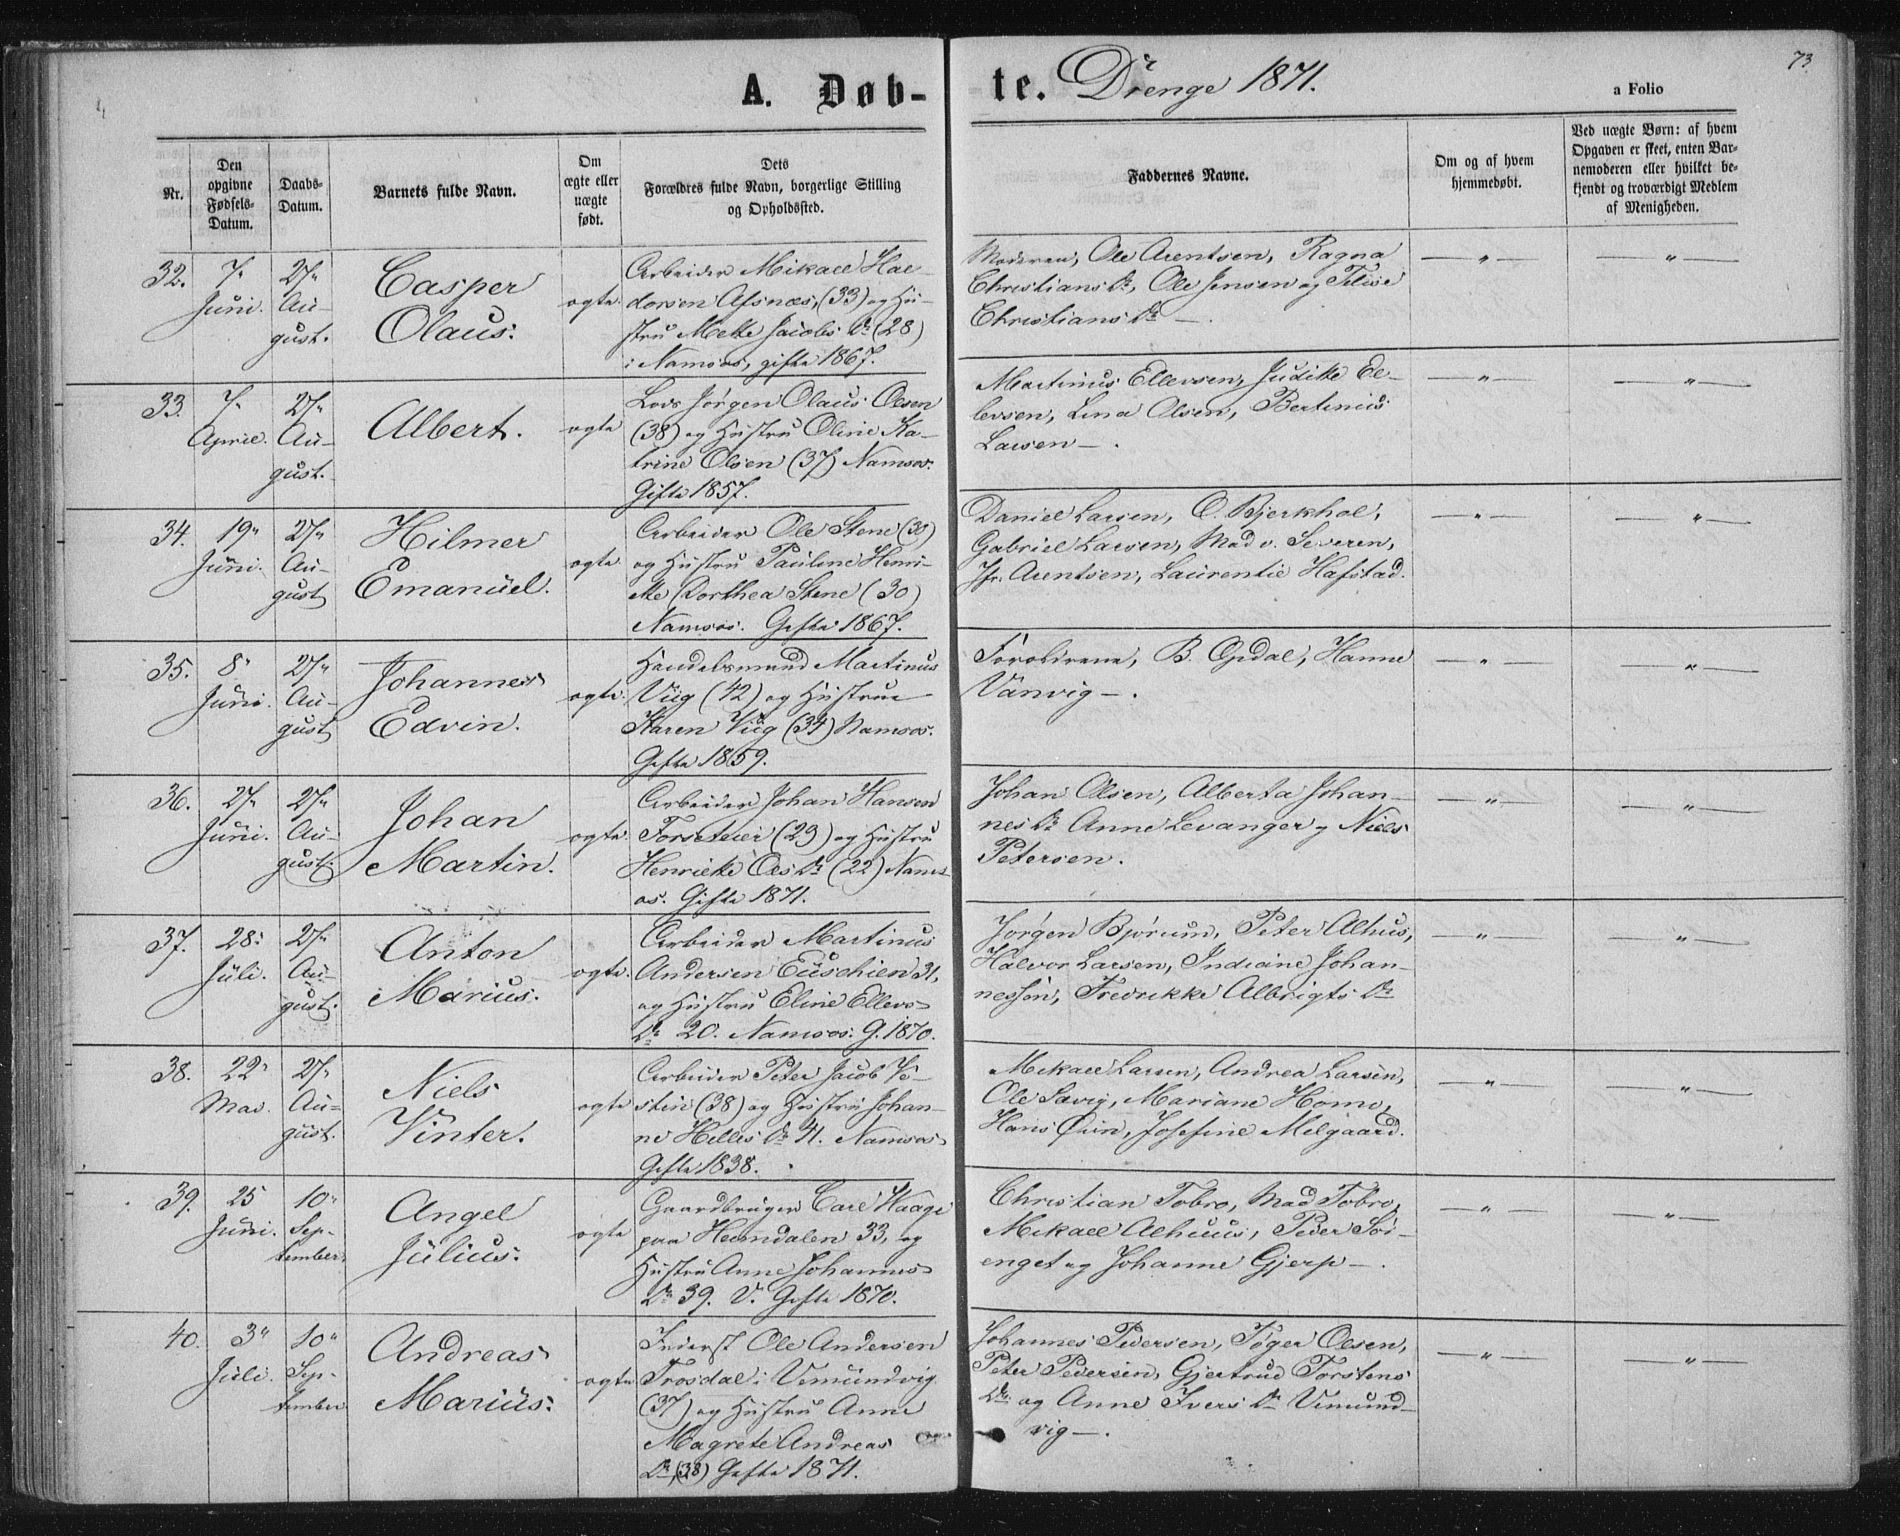 73.
A. Døb-
te. Drenge 1871.
a Folio
Nr.
Den
opgivne
Fødsels-
Datum.
Daabs-
Datum.
Barnets fulde Navn.
Om
ægte eller
uægte
født.
Dets
Forældres fulde Navn, borgerlige Stilling
og Opholdssted.
Faddernes Navne.
Om og af hvem
hjemmedøbt.
Ved uægte Børn: af hvem
Opgaven er skeet, enten Bar-
nemoderen eller hvilket be-
kjendt og troværdigt Medlem
af Menigheden.
32.
7"
Juni.
27"
Au-
gust.
Casper
Olaus.
ægte.
Arbeider Mikael Hal-
dorsen Afsnæs, (33) og Hu-
stru Mette Jacobs Dr (28)
i Namsos, gifte 1867.
Moderen, Ole Arentsen, Ragna
Christians Dr, Ole Jensen og
Christians Dr —.
— " —
— " —
33.
7"
April.
27"
Au-
gust.
Albert.
ægte
Lods Jørgen Olaus Olsen
(38) og Hustru Oline Ka-
trine Olsen (37) Namsos.
Gifte 1857.
Martinus Ellevsen, Judithe El-
levsen, Lina Olsen, Bertinius
Larsen —.
— " —
— " —
34.
19"
Juni.
27"
Au-
gust
Hilmer
Emanuel.
ægte.
Arbeider Ole Stene (30)
og Hustru Pauline Henri-
ette Dorthea Stene (30)
Namsos. Gifte 1867.
Daniel Larsen, O. Bjerkhol,
Gabriel Larsen, Mad v. Severen,
Jfr. Arentsen, Laurentie Hafstad.
— " —
— " —
35.
8"
Juni.
27"
Au-
gust
Johannes
Edvin.
ægte.
Handelsmand Martinus
Viig (42) og Hustrue
Karen Viig (34) Namsos.
Gifte 1859.
Forældrene, B. Opdal, Hanne
Vanvig —.
— " —
— " —
36.
27"
Juni.
27"
Au-
gust.
Johan
Martin.
ægte.
Arbeider Johan Hansen
(23) og Hustru
Henriette Ols Dr (22) Nams-
os. Gifte 1871.
Johan Olsen, Alberta Johan-
nes Dr Anne Levanger og Niels
Petersen.
— " —
— " —
37.
28"
Juli.
27"
Au-
gust.
Anton
Marius.
ægte.
Arbeider Martinus
Andersen 31,
og Hustru Eline Ellevs
Dr 20. Namsos. G. 1870.
Jørgen Bjørum, Peter Alhus,
Halvor Larsen, Indiane Johan-
nessen, Fredrikke Albrigts Dr
— " —
— " —
38.
22"
27"
Au-
gust.
Niels
Vinter.
ægte
Arbeider Peter Jacob Ve-
stin (38) og Hustru Johan-
ne Hellis Dr 41. Namsos
Gifte 1838.
Mikael Larsen, Andrea Larsen,
Ole Savig, Mariane Homo,
Hans Josefine Melgaard.
— " —
— " —
39.
25
Juni.
10"
Sep-
tember
Angel
Julius.
ægte
Gaardbruger Carl Haagi
paa Heimdalen 33, og
Hustru Anne Johannes
Dr 39. V. Gifte 1870.
Christian Tobro, Mad Tobro,
Mikael Alhuus, Peder Sør-
enget og Johanne Gjerp —.
— " —
— " —
40.
3"
Juli.
10"
Sep-
tember
Andreas
Marius.
ægte
Inderst Ole Andersen
Trosdal i Vemundvig
(37) og Hustru Anne
Magrete Andreas
Dr (38) Gifte 1871.
Johannes Pedersen, Olsen,
Peter Pedersen, Gjertrud Torstens
Dr og Anne Ivers Dr Vemund-
vig —.
— " —
— " —